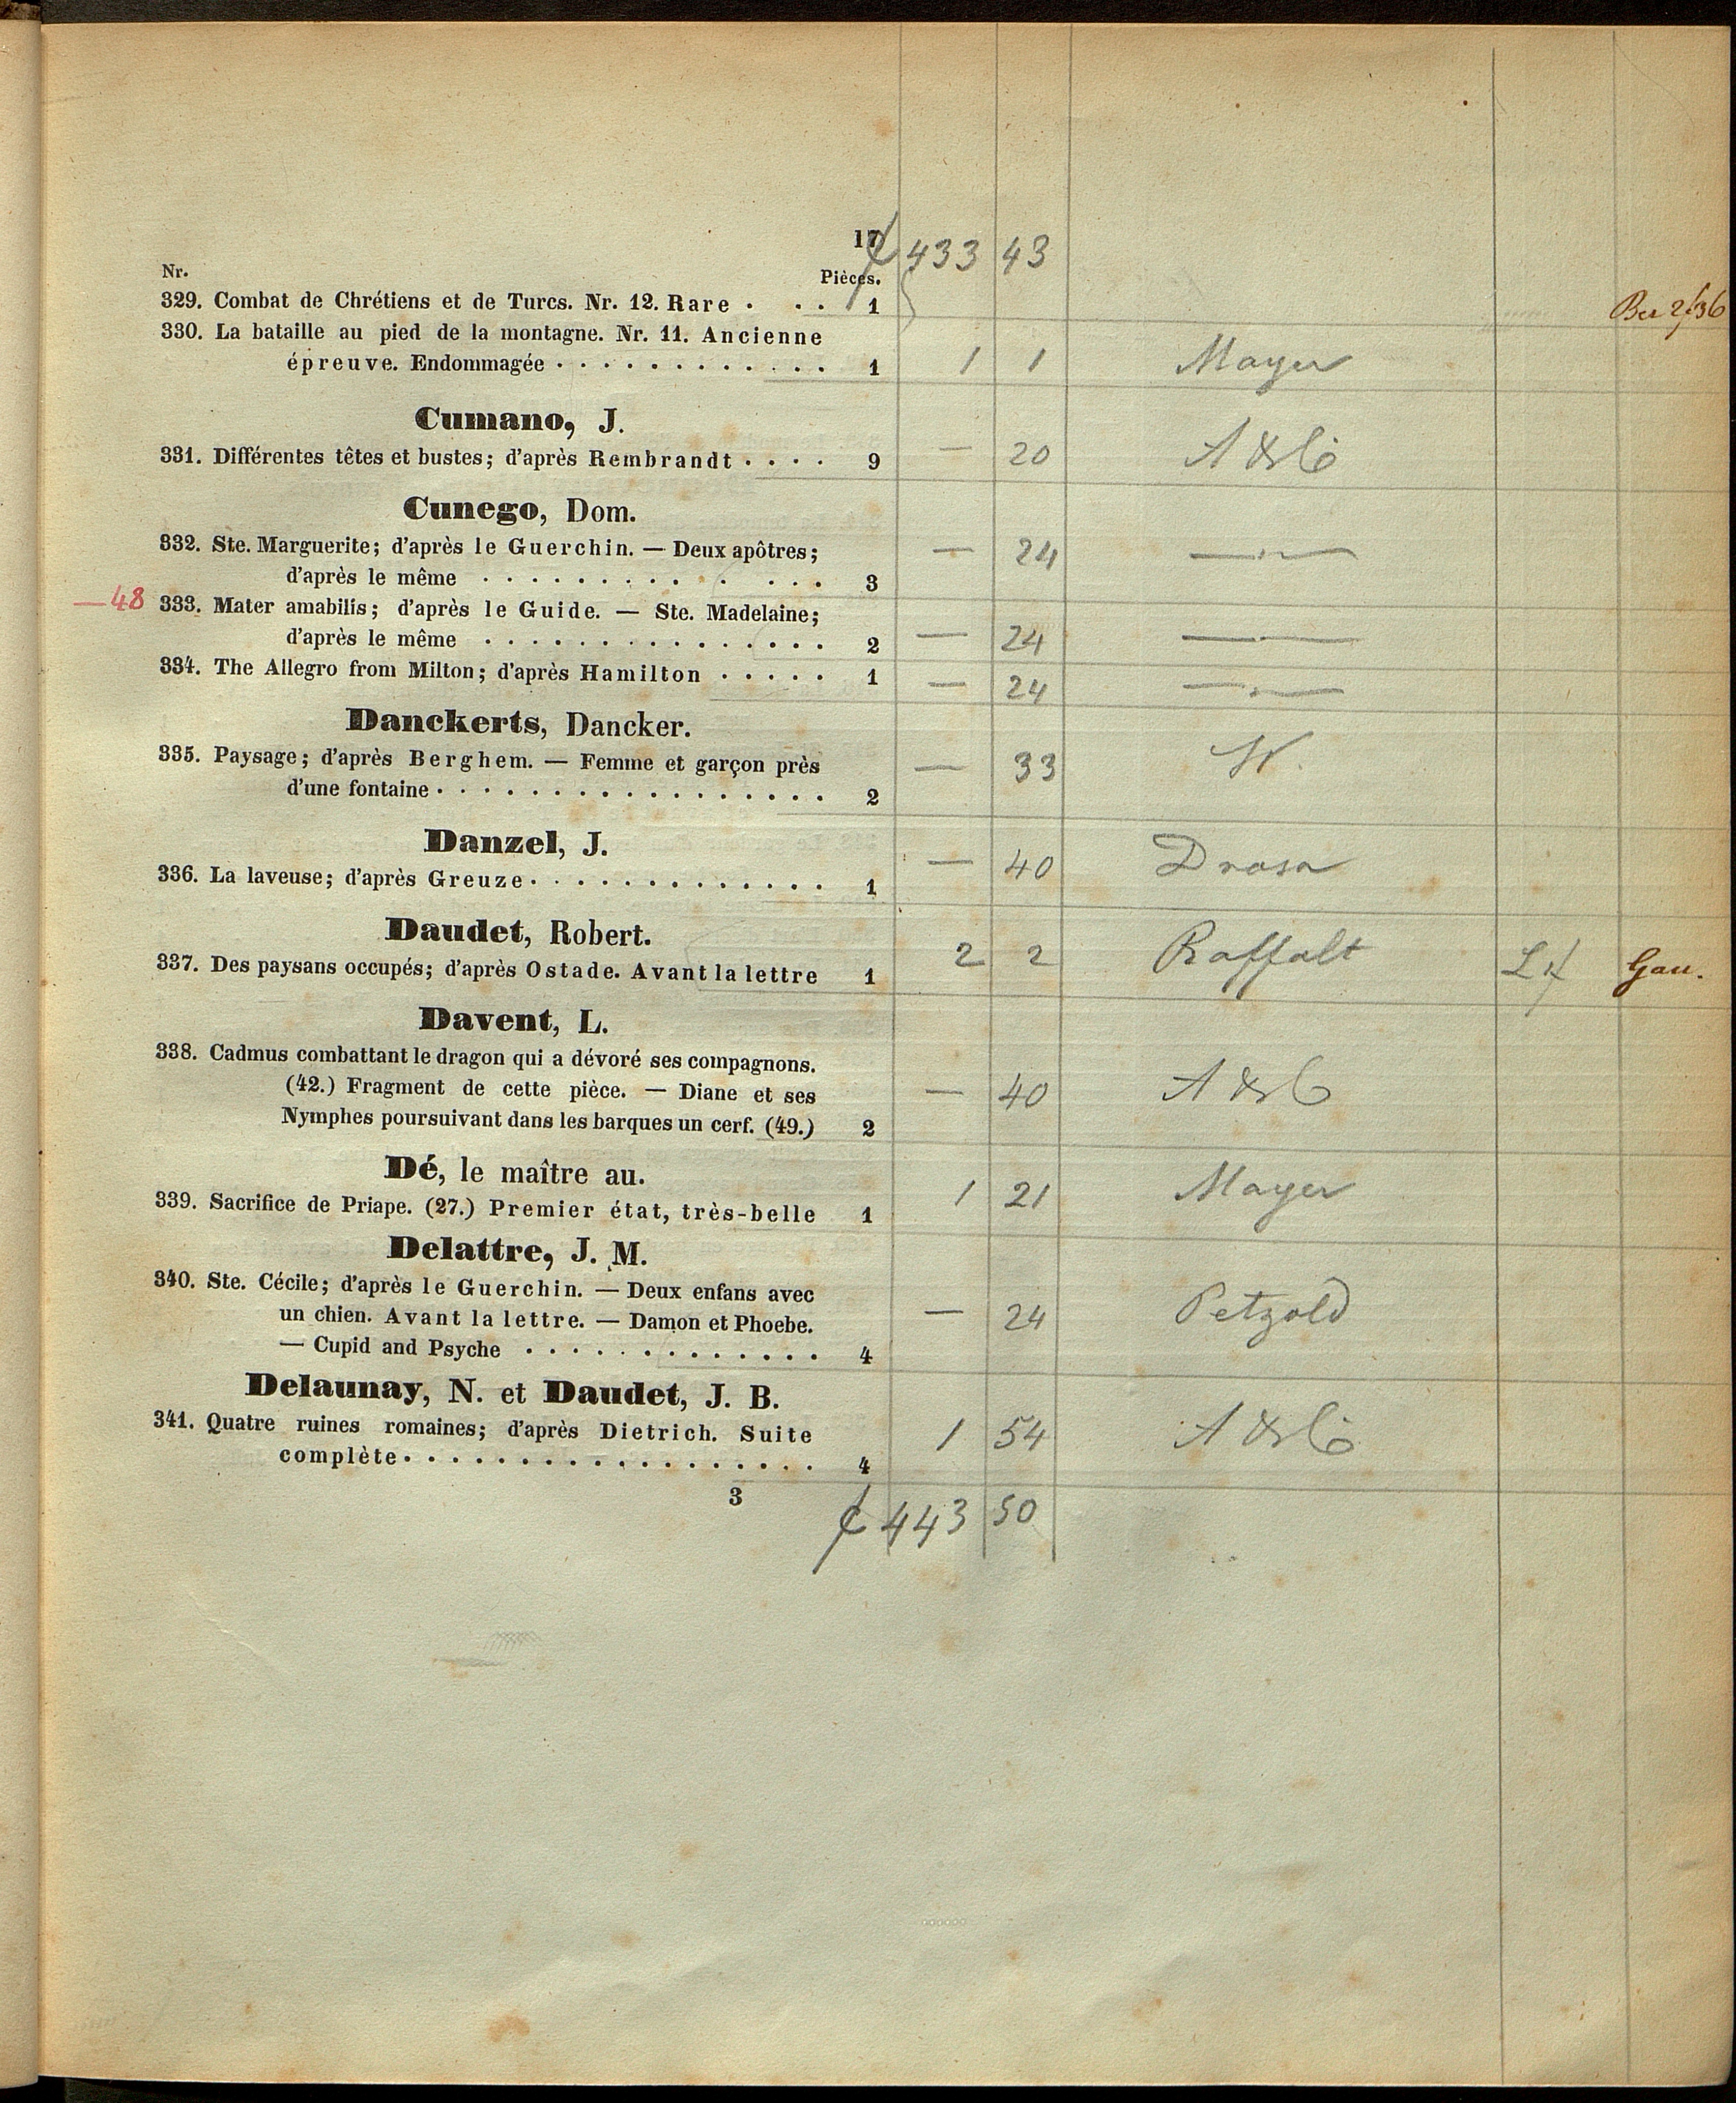 17
433 43
Nr.
Pièces.
329. Combat de Chrétiens et de Turcs. Nr. 12. Rare . . . 1
330. La bataille au pied de la montagne. Nr. 11. Ancienne
épreuve. Endommagée . . . . . . . . . . . . 1 1 1 Mayer
Cumano, J.
331. Différentes têtes et bustes; d'après Rembrandt . . . . 9 — 20
Cunego, Dom.
332. Ste. Marguerite; d'après le Guerchin. — Deux apôtres;
d'après le même . . . . . . . . . . . . . 3 — 24 —
— 48
333. Mater amabilis; d'après le Guide. — Ste. Madelaine;
d'après le même . . . . . . . . . . . . . . . 2 — 24 —
334. The Allegro from Milton; d'après Hamilton . . . . . 1 — 24 —
Danckerts, Dancker.
335. Paysage; d'après Berghem. — Femme et garçon près
d'une fontaine . . . . . . . . . . . . . . . . . 2 — 33 W.
Danzel, J.
336. La laveuse; d'après Greuze . . . . . . . . . . . . . 1 — 40
Daudet, Robert.
337. Des paysans occupés; d'après Ostade. Avant la lettre 1 2 2 Raffalt Gau.
Davent, L.
338. Cadmus combattant le dragon qui a dévoré ses compagnons.
(42.) Fragment de cette pièce. — Diane et ses
Nymphes poursuivant dans les barques un cerf. (49.) 2 — 40
Dé, le maître au.
339. Sacrifice de Priape. (27.) Premier état, très-belle 1 1 21 Mayer
Delattre, J. M.
340. Ste. Cécile; d'après le Guerchin. — Deux enfans avec
un chien. Avant la lettre. — Damon et Phoebe.
— Cupid and Psyche . . . . . . . . . . . . . 4 — 24 Petzold
Delaunay, N. et Daudet, J. B.
341. Quatre ruines romaines; d'après Dietrich. Suite
complète . . . . . . . . . . . . . . . . . . 4 1 54
3
443 50